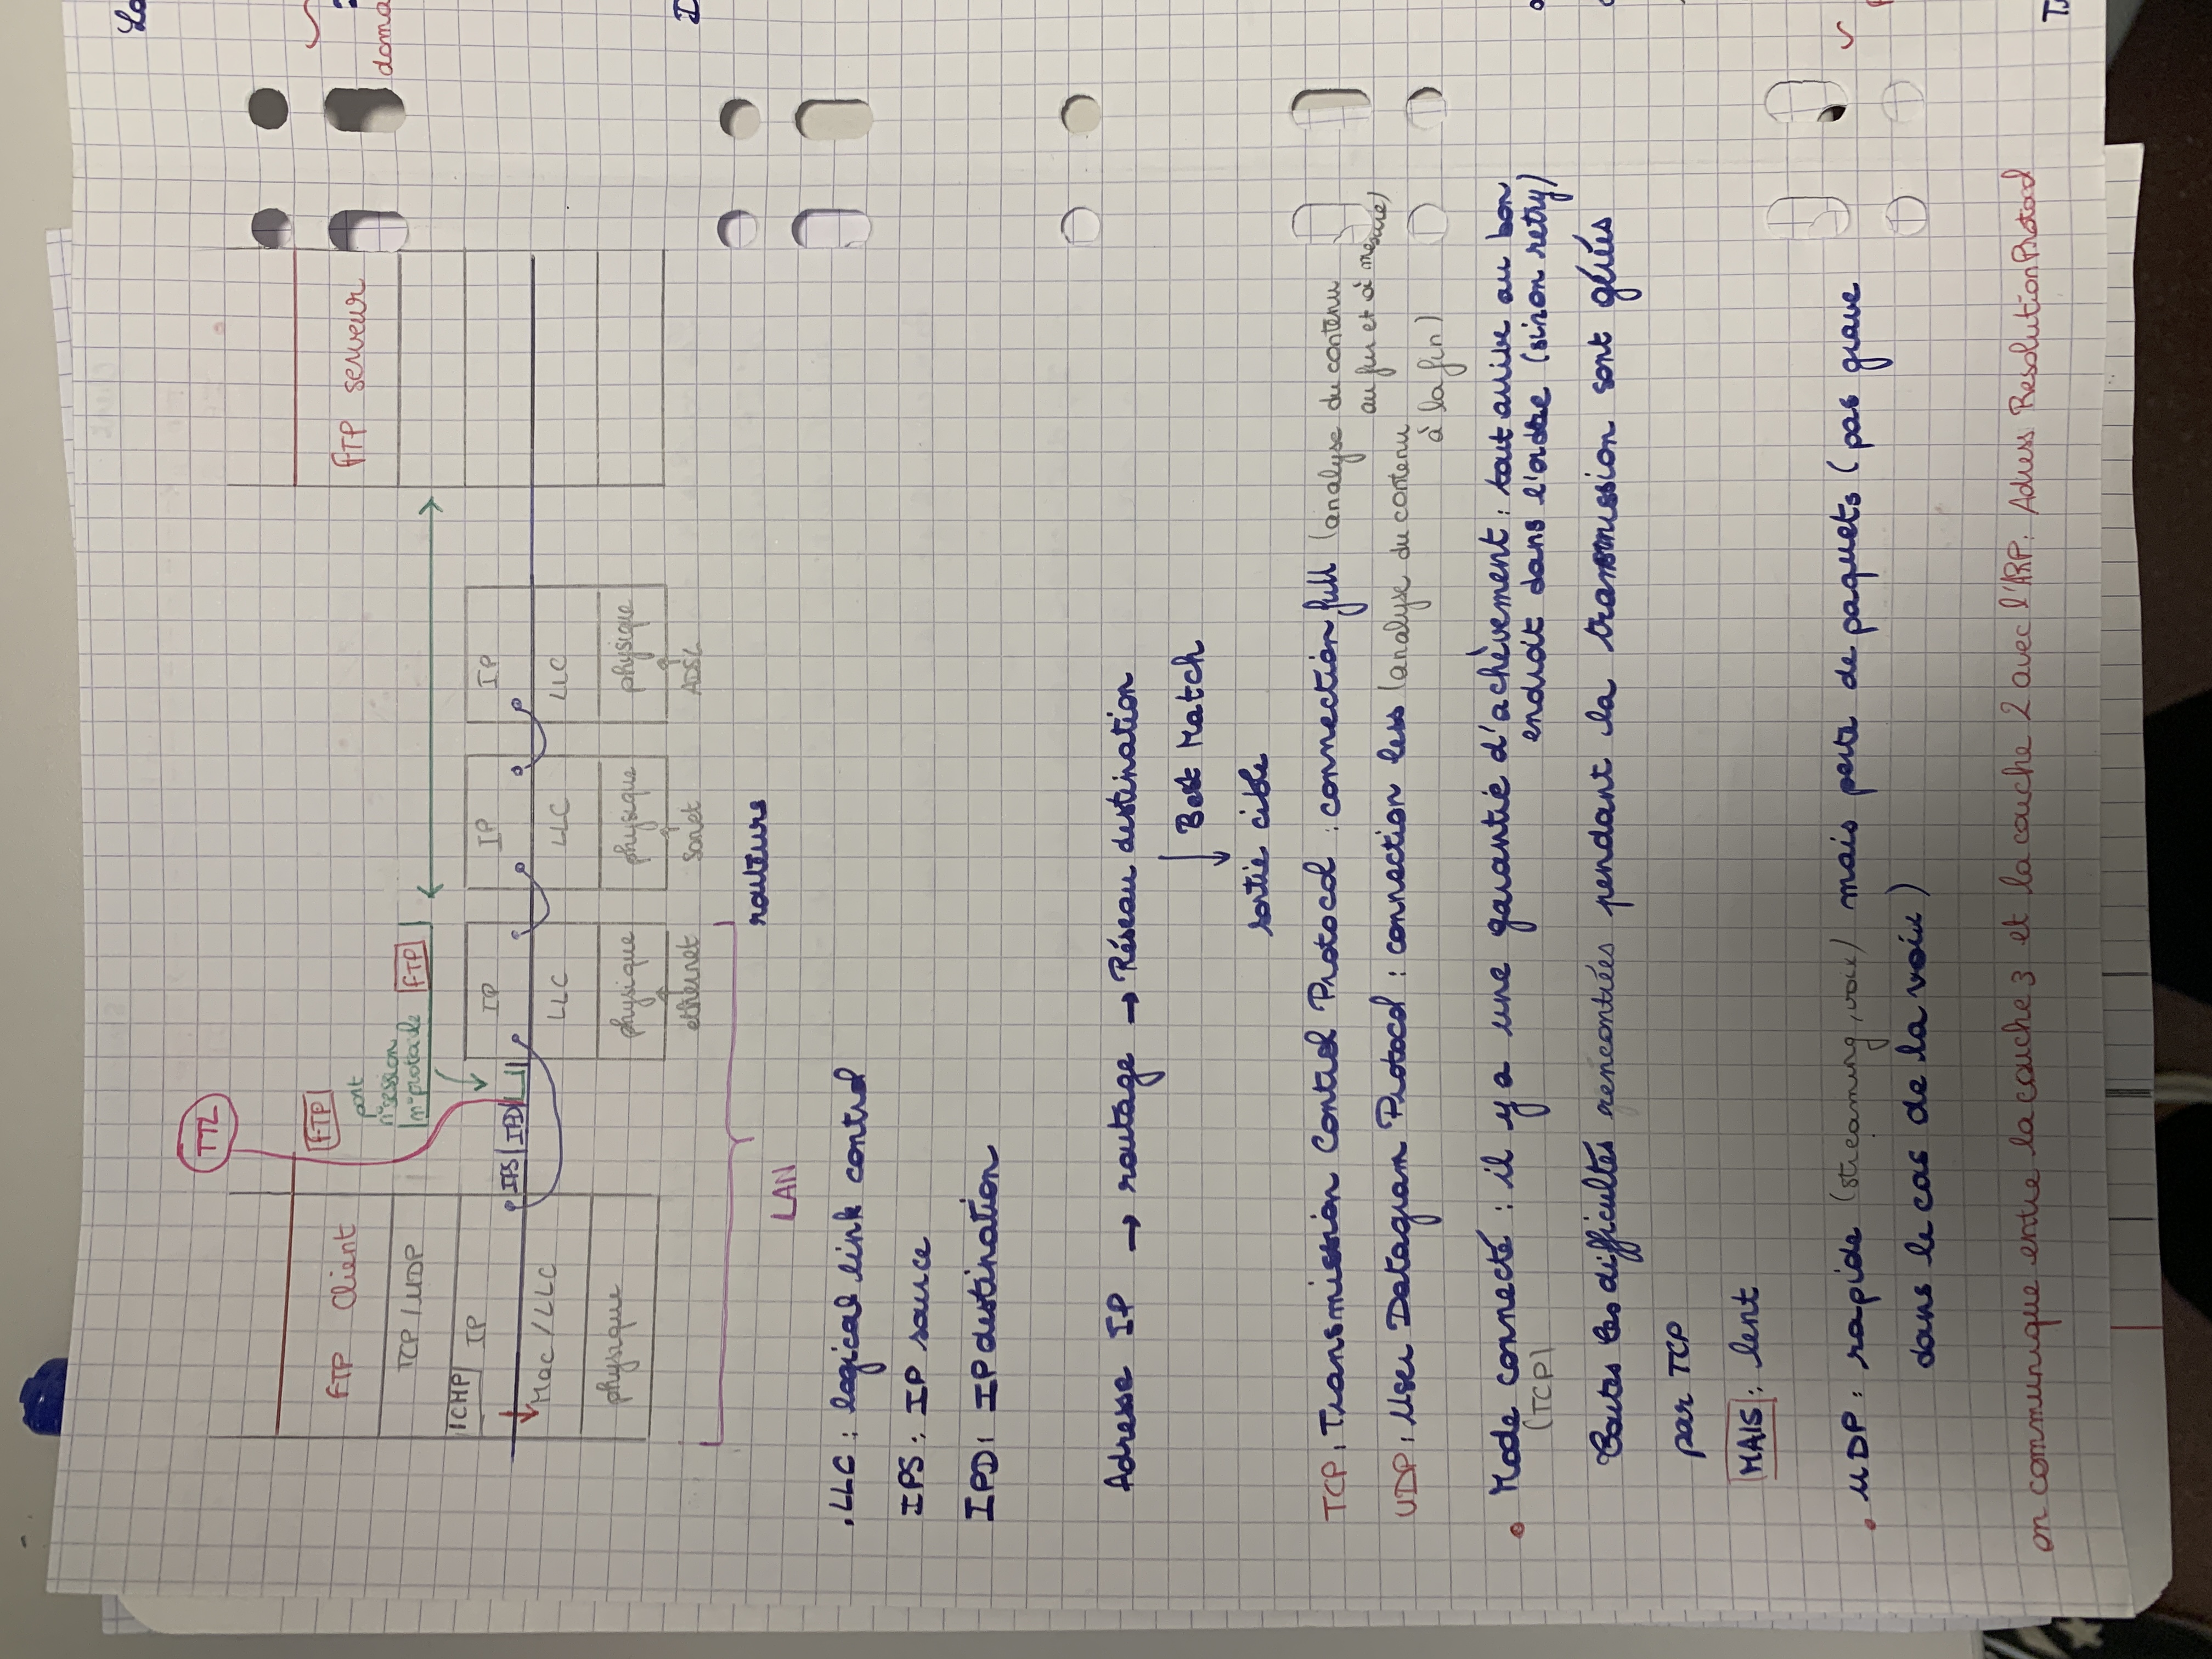 TTL
FTP
FTP Client
FTP serveur
port
n° session
n° protocole FTP
TCP / UDP
ICMP IP
IPS | IPD
IP
IP
IP
Mac / LLC
LLC
LLC
LLC
physique
physique
physique
physique
ethernet
Sonet
ADSL
routeurs
LAN
. LLC : logical link control
IPS : IP source
IPD : IP destination
Adresse IP → routage → Réseau destination
↓ Best Match
sortie cible
TCP : Transmission Control Protocol : connection full (analyse du contenu
au fur et à mesure)
UDP : User Datagram Protocol : connection less (analyse du contenu
à la fin)
• Mode connecté : il y a une garantie d'achèvement : tout arrive au bon
(TCP) endroit dans l'ordre (sinon retry)
Toutes les difficultés rencontrées pendant la transmission sont gérées
par TCP
MAIS : lent
• UDP : rapide (streaming, voix) mais perte de paquets (pas grave
dans le cas de la voix)
on communique entre la couche 3 et la couche 2 avec l'ARP : Adress Resolution Protocol